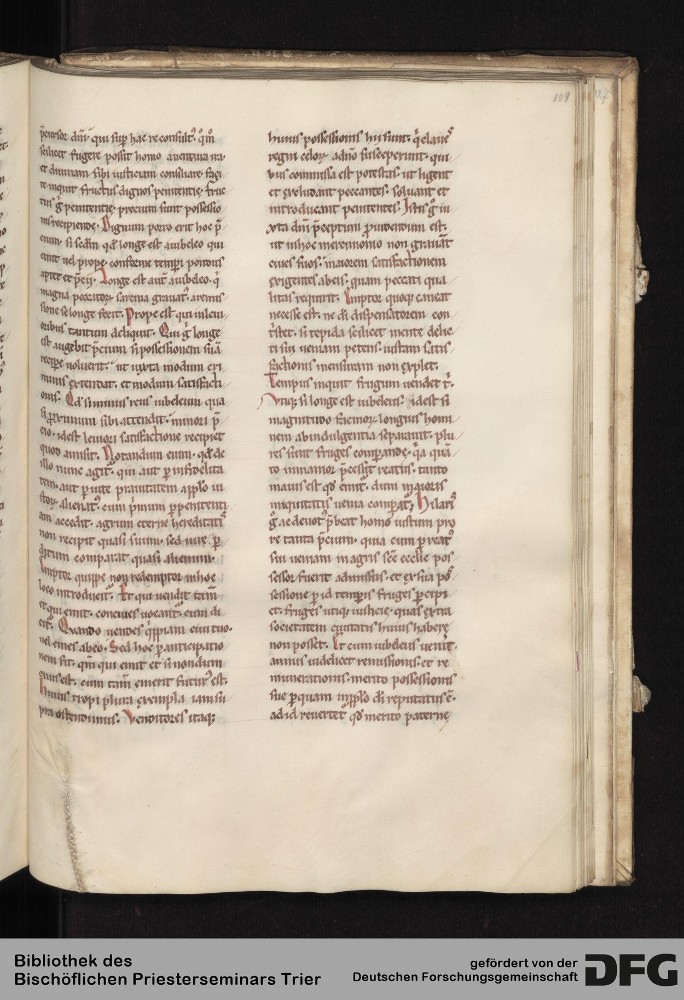 109
scilicet fugere possit homo a uentura ira
et diuinam sibi iusticiam conciliare. faci
te inquit fructus dignos penitentie. fruc
tus g̃ penitentie. precium sunt possessio
nis recipiende. Dignum porro erit hoc p̃
cium. si scdm qd longe est a iubeleo qui
emit uel prope. conferme
Longe est aut̃ a iubeleo. q̇
magna peccatoꝝ sarcina grauat᷒
sione se longe fecit. Prope est qui in leui
oribus tantum deliquit. Qui g̃ longe
est augebit p̃cium si possessionem suã
recipe uoluerit. ut iuxta modum cri
minis extendat. et modum satisfacti
onis. Qd si minus
sibi attendit. minori p̃
cio. idest leuiori satisfactione recipiet
quod amisit. Notandum enim. qd de
illo nunc agit᷒. qui aut p̱ infidelita
tem. aut p̱ uite prauitatem
alienat᷒. cum p̃mum p̱ penitenti
am accedit. agrum eterne hereditatis
non recipit quasi suum. sed
comparat quasi alienum.
Emptor quippe non redemptor in hoc
loco introducit᷒. Et qui uendit tam̃
et qui emit. conciues uocant᷒. cum di
cit᷒. Quando uendes q̇ppiam ciui tuo.
uel emes ab eo. Sed hoc p̱ anticipatio
nem fit. qm̃ qui emit et si nondum
ciuis est. cum tam̃ emerit futur᷒ est.
Huius tropi plura exempla iam su
pra ostendimus. Venditores itaq;
huius possessionis hii sunt. q̇ claues
regni celoꝝ a dño susceperunt. qui
bus commissa est potestas. ut ligent
et excludant peccantes. soluant et
introducant penitentes. Istis g̃ iu
xta dñi p̃ceptum prouidendum est.
ut in hoc mercimonio non grauãt
ciues suos. maiorem satisfactionem
exigentes ab eis. quam peccati qua
litas requirit. Emptor quoq; caueat
necesse est. ne di dispensatorem con
t̾stet. si tepida scilicet mente delic
ti sui ueniam petens. iustam satis
factionis mensuram non explet.
Tempus inquit frugum uendet t̾.
Vtiq; si longe est iubeleus. idest si
magnitudo facinoꝝ. longius homi
nem ab indulgentia separauit. plu
res sint fruges comparande. q̇a qua
to inmanior p̃cessit reatus. tanto
maius est qd emit᷒. dum maioris
iniquitatis uenia comparat᷒. Hilaris
g̃ ac deuot᷒ p̃beat homo iustum pro
re tanta p̃cium. qua cum p̱ reat᷒
sui ueniam magris sc̃e ecclie pos
sessor fuerit admissus. et ex sua pos
sessione p̱ id temporis fruges p̱cipi
et. fruges utiq; iusticie. quas extra
societatem ciuitatis huius habere
non posset. Et cum iubeleus uenit.
annus uidelicet remissionis et re
munerationis. merito possessionis
sue p̱ quam in pp̃lo di reputatus ẽ.
ad id reuertet᷒ qd merito paterne
Bibliothek des
Bischöflichen Priesterseminars Trier
gefördert von der
Deutschen Forschungsgemeinschaft
DFG